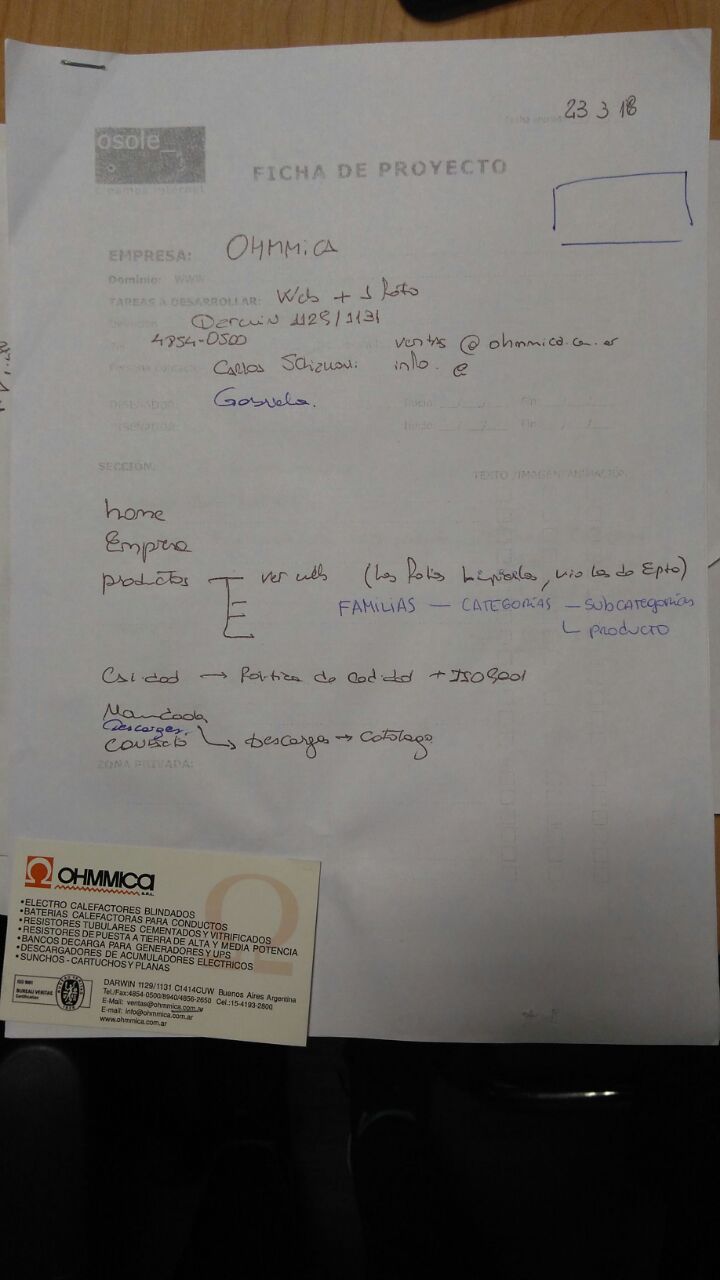 23 3 18
osole_
FICHA DE PROYECTO
EMPRESA: OHMMICA
Dominio: WWW
TAREAS A DESARROLLAR: Web + 1 foto
Darwin 1129/1131
4854-0500 ventas @ ohmmica.com.ar
Carlos info. @
Gabriela.
DISEÑADOR:
SECCIÓN: TEXTO/IMAGEN/ANIMACIÓN
home
Empresa
productos ver web (Las fotos
FAMILIAS — CATEGORÍAS — SUBCATEGORÍAS
PRODUCTO
Calidad → Política de Calidad + ISO9001
Descargas.
contacto Descargas → Catálogo
ZONA PRIVADA:
Ω OHMMICA S.R.L.
•ELECTRO CALEFACTORES BLINDADOS
•BATERIAS CALEFACTORAS PARA CONDUCTOS
•RESISTORES TUBULARES CEMENTADOS Y VITRIFICADOS
•RESISTORES DE PUESTA A TIERRA DE ALTA Y MEDIA POTENCIA
•BANCOS DECARGA PARA GENERADORES Y UPS
•DESCARGADORES DE ACUMULADORES ELECTRICOS
•SUNCHOS - CARTUCHOS Y PLANAS
ISO 9001
BUREAU VERITAS
Certification
DARWIN 1129/1131 C1414CUW Buenos Aires Argentina
Tel./Fax:4854-0500/8940/4856-2650 Cel.:15-4193-2800
E-Mail: ventas@ohmmica.com.ar
E-mail: info@ohmmica.com.ar
www.ohmmica.com.ar